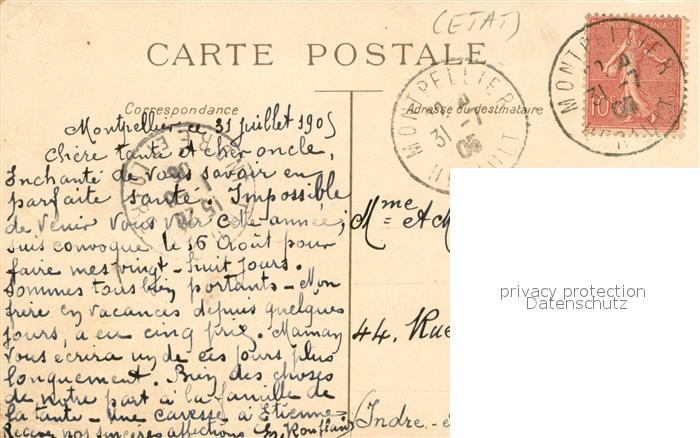 (ETAT)
CARTE POSTALE
Correspondance
Adresse du destinataire
MONTPELLIER
31 - 7
05
HERAULT
MONTPELLIER
31 - 7
05
10c
Montpellier, ce 31 juillet 1905
Chère tante et cher oncle,
Enchanté de vous savoir en
parfaite santé. Impossible
de venir vous voir cette année;
suis convoqué le 16 Août pour
faire mes vingt-huit jours.
Sommes tous bien portants - Mon
frère en vacances depuis quelques
jours, a eu cinq prix. Maman
vous écrira un de ces jours plus
longuement. Bien des choses
de notre part à la famille de
la tante - Une caresse à Etienne -
Recevez nos sincères affections
Mme et M
44. Rue
Indre-
privacy protection
Datenschutz